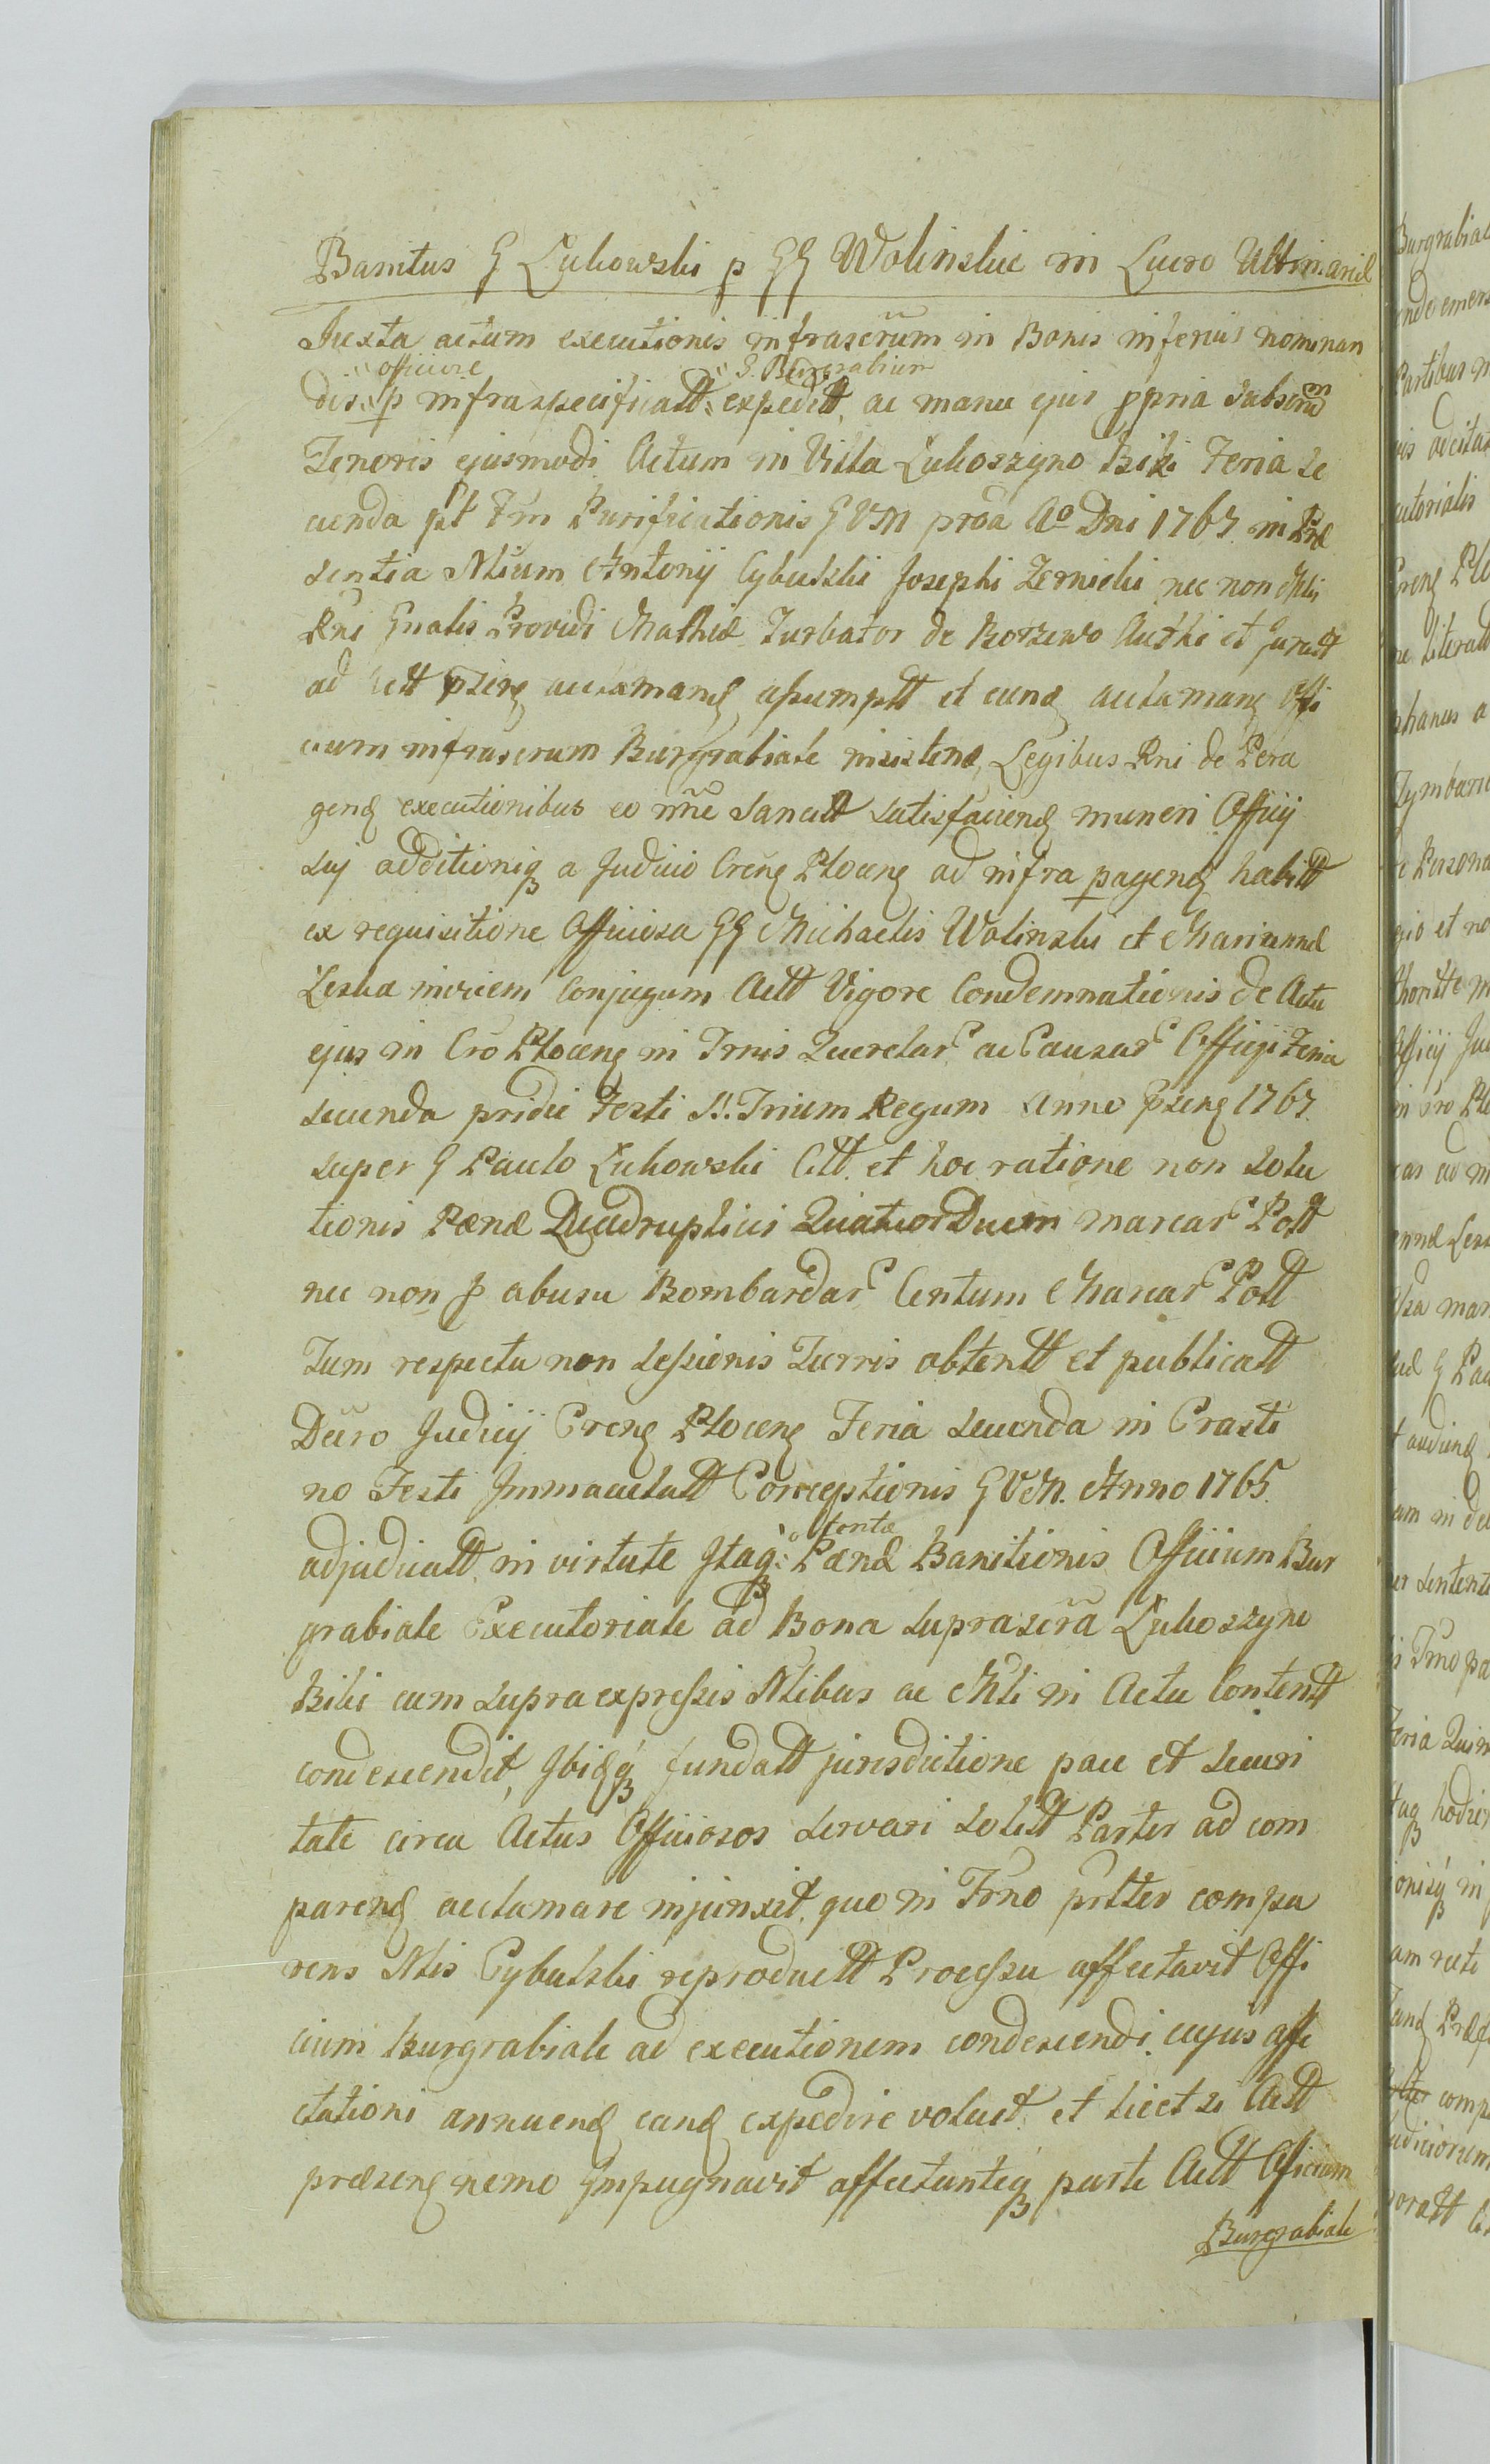 Banitus G Lukowski p GG Wolinskie in Lucro Ultimariæ
Juxta actum executionis infrascrum in Bonis inferius nominan
officiose G. Burgrabium
dis p infraspecificatt expeditt, ac manu ejus ppria subscrum
Tenoris ejusmodi Actum in Villa Lukoszyno Biki Feria Se
cunda pt Fm Purificationis G V M proa Ao Dni 1767 in Præ
sentia Nlium Antonij Cybulski Josephi Zernicki nec non Mlis
Rni Gnalis Providi Mathiæ Turbator de Borzewo Authi et Juratt
ad actt psens acclamand assumptt et eund acclamand Offi
cium infrascrum Burgrabiale insistend, Legibus Rni de Pera
gend executionibus eo nne Sancitt satisfaciend muneri Officij
Sui additioniq a Judicio Crens Plocens ad infra pagend habitt
ex requisitione Officiosa GG Michaelis Wolinski et Mariannæ
Leska invicem Conjugum Actt Vigore Condemnationis de Actu
ejus in Cro Plocens in Trnis Querelar ac Causar Officij Feria
secunda pridie Festi SS. Trium Regum Anno psens 1767.
super G Paulo Lukowski Citt. et hoc ratione non Solu
tionis Pænæ Quadruplicis Quatuordecim marcar Poll
nec non p abusu Bombardar Centum Marcar Poll
Tum respectu non Sessionis Turris obtentt et publicatt
Decro Judicij Crens Plocens Feria Secunda in Crasti
no Festi Immaculatt Conceptionis G V M. Anno 1765.
tentæ
adjudicatt, in virtute Itaq: Pænæ Banitionis Officium Bur
grabiale Executoriale ad Bona suprascra Lukoszyno
Biki cum supra expressis Nlibus ac Mli in Actu Contentt
condescendit, Ibidq fundatt jurisdictione pace et Securi
tate circa Actus Officiosos Servari Solitt Partes ad com
parend acclamare injunxit, quo in Trno pntter compa
rens Nlis Cybulski reproductt Processu affectavit Offi
cium Burgrabiale ad executionem condescendi, cujus affe
ctationi annuend eand expedire voluit et licet se Actt
præsens nemo Impugnavit affectanteq parte Actt Officium
Burgrabiale